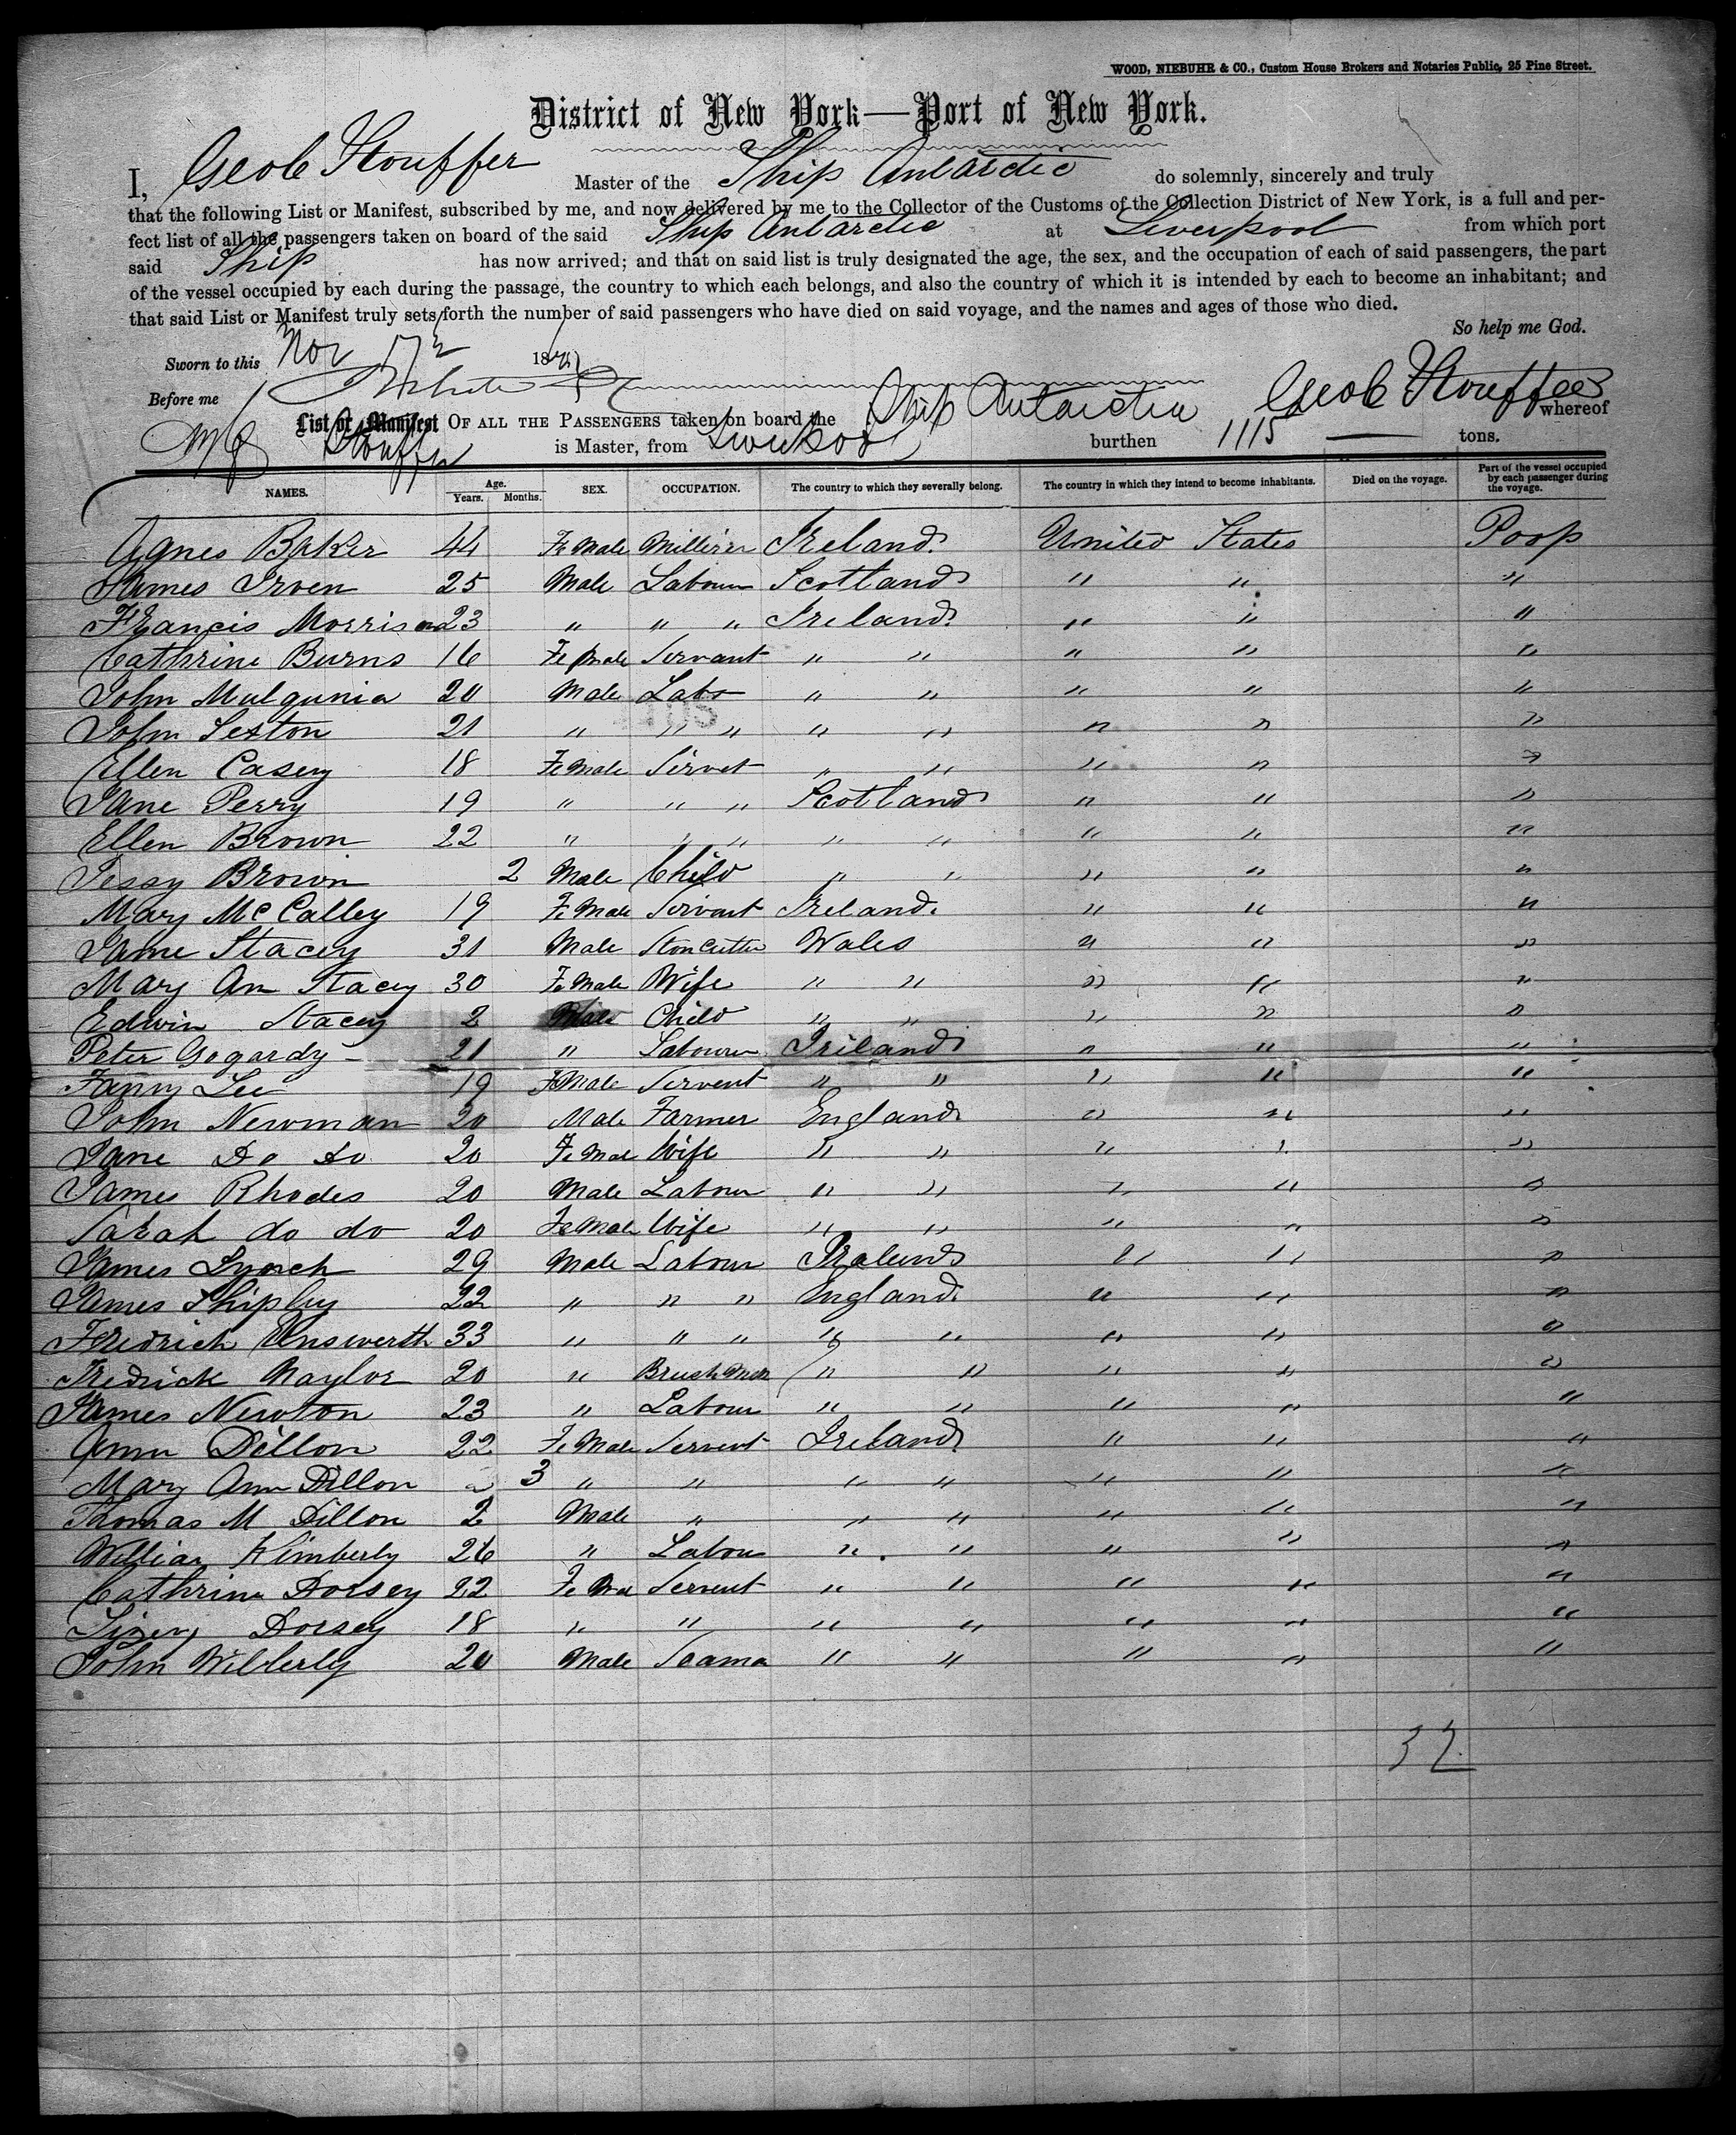 WOOD, NIEBUHR & CO., Custom House Brokers and Notaries Public, 25 Pine Street.
District of New York—Port of New York.
I, Geo C Stouffer Master of the Ship Antarctic do solemnly, sincerely and truly
that the following List or Manifest, subscribed by me, and now delivered by me to the Collector of the Customs of the Collection District of New York, is a full and per-
fect list of all the passengers taken on board of the said Ship Antarctic at Liverpool from which port
said Ship has now arrived; and that on said list is truly designated the age, the sex, and the occupation of each of said passengers, the part
of the vessel occupied by each during the passage, the country to which each belongs, and also the country of which it is intended by each to become an inhabitant; and
that said List or Manifest truly sets forth the number of said passengers who have died on said voyage, and the names and ages of those who died.
So help me God.
Sworn to this Nov 17 18
Before me Geo C Stouffer
List or Manifest OF ALL THE PASSENGERS taken on board the Ship Antarctic whereof
Stouffer is Master, from Liverpool burthen 1115 tons.
NAMES. Age. Years. Months. SEX. OCCUPATION. The country to which they severally belong. The country in which they intend to become inhabitants. Died on the voyage. Part of the vessel occupied by each passenger during the voyage.
Agnes Baker 44 Fe Male Milliner Ireland United States Poop
James Irven 25 Male Labour Scotland " " "
Francis Morrison 23 " " " Ireland " " "
Cathrine Burns 16 Fe male Servant " " " " "
John Mulgunia 20 Male Labr " " " " "
John Sexton 21 " " " " " " " "
Ellen Casey 18 Fe Male Servet " " " " "
Jane Perry 19 " " " Scotland " " "
Ellen Brown 22 " " " " " " " "
Jessy Brown 2 Male Child " " " " "
Mary McCalley 19 Fe Male Servant Ireland " " "
Jame Stacey 31 Male Stoncutter Wales " " "
Mary An Stacey 30 Fe Male Wife " " " " "
Edwin Stacey 2 Male Child " " " " "
Peter Gogardy 21 " Labourer Iriland " " "
Fanny Lee 19 FeMale Servent " " " " "
John Newman 20 Male Farmer England " " "
Jane Do Do 20 Fe Mal Wife " " " " "
James Rhodes 20 Male Labour " " " " "
Sarah do do 20 Fe Male Wife " " " " "
James Lynch 29 Male Labour Iraland " " "
James Shipley 22 " " " England " " "
Fredrick Unswerth 33 " " " " " " " "
Fredrick Naylor 20 " " " " " "
James Newton 23 " Labour " " " " "
Ann Dillon 22 Fe Male Servent Ireland " " "
Mary Ann Dillon 3 " " " " " " "
Thomas M Dillon 2 Male " " " " " "
William Kimberly 26 " Labou " " " " "
Cathrine Dorsey 22 Fe Mal Servent " " " " "
Lizey Dorsey 18 " " " " " " "
John Wilberly 20 Male Seama " " " " "
32